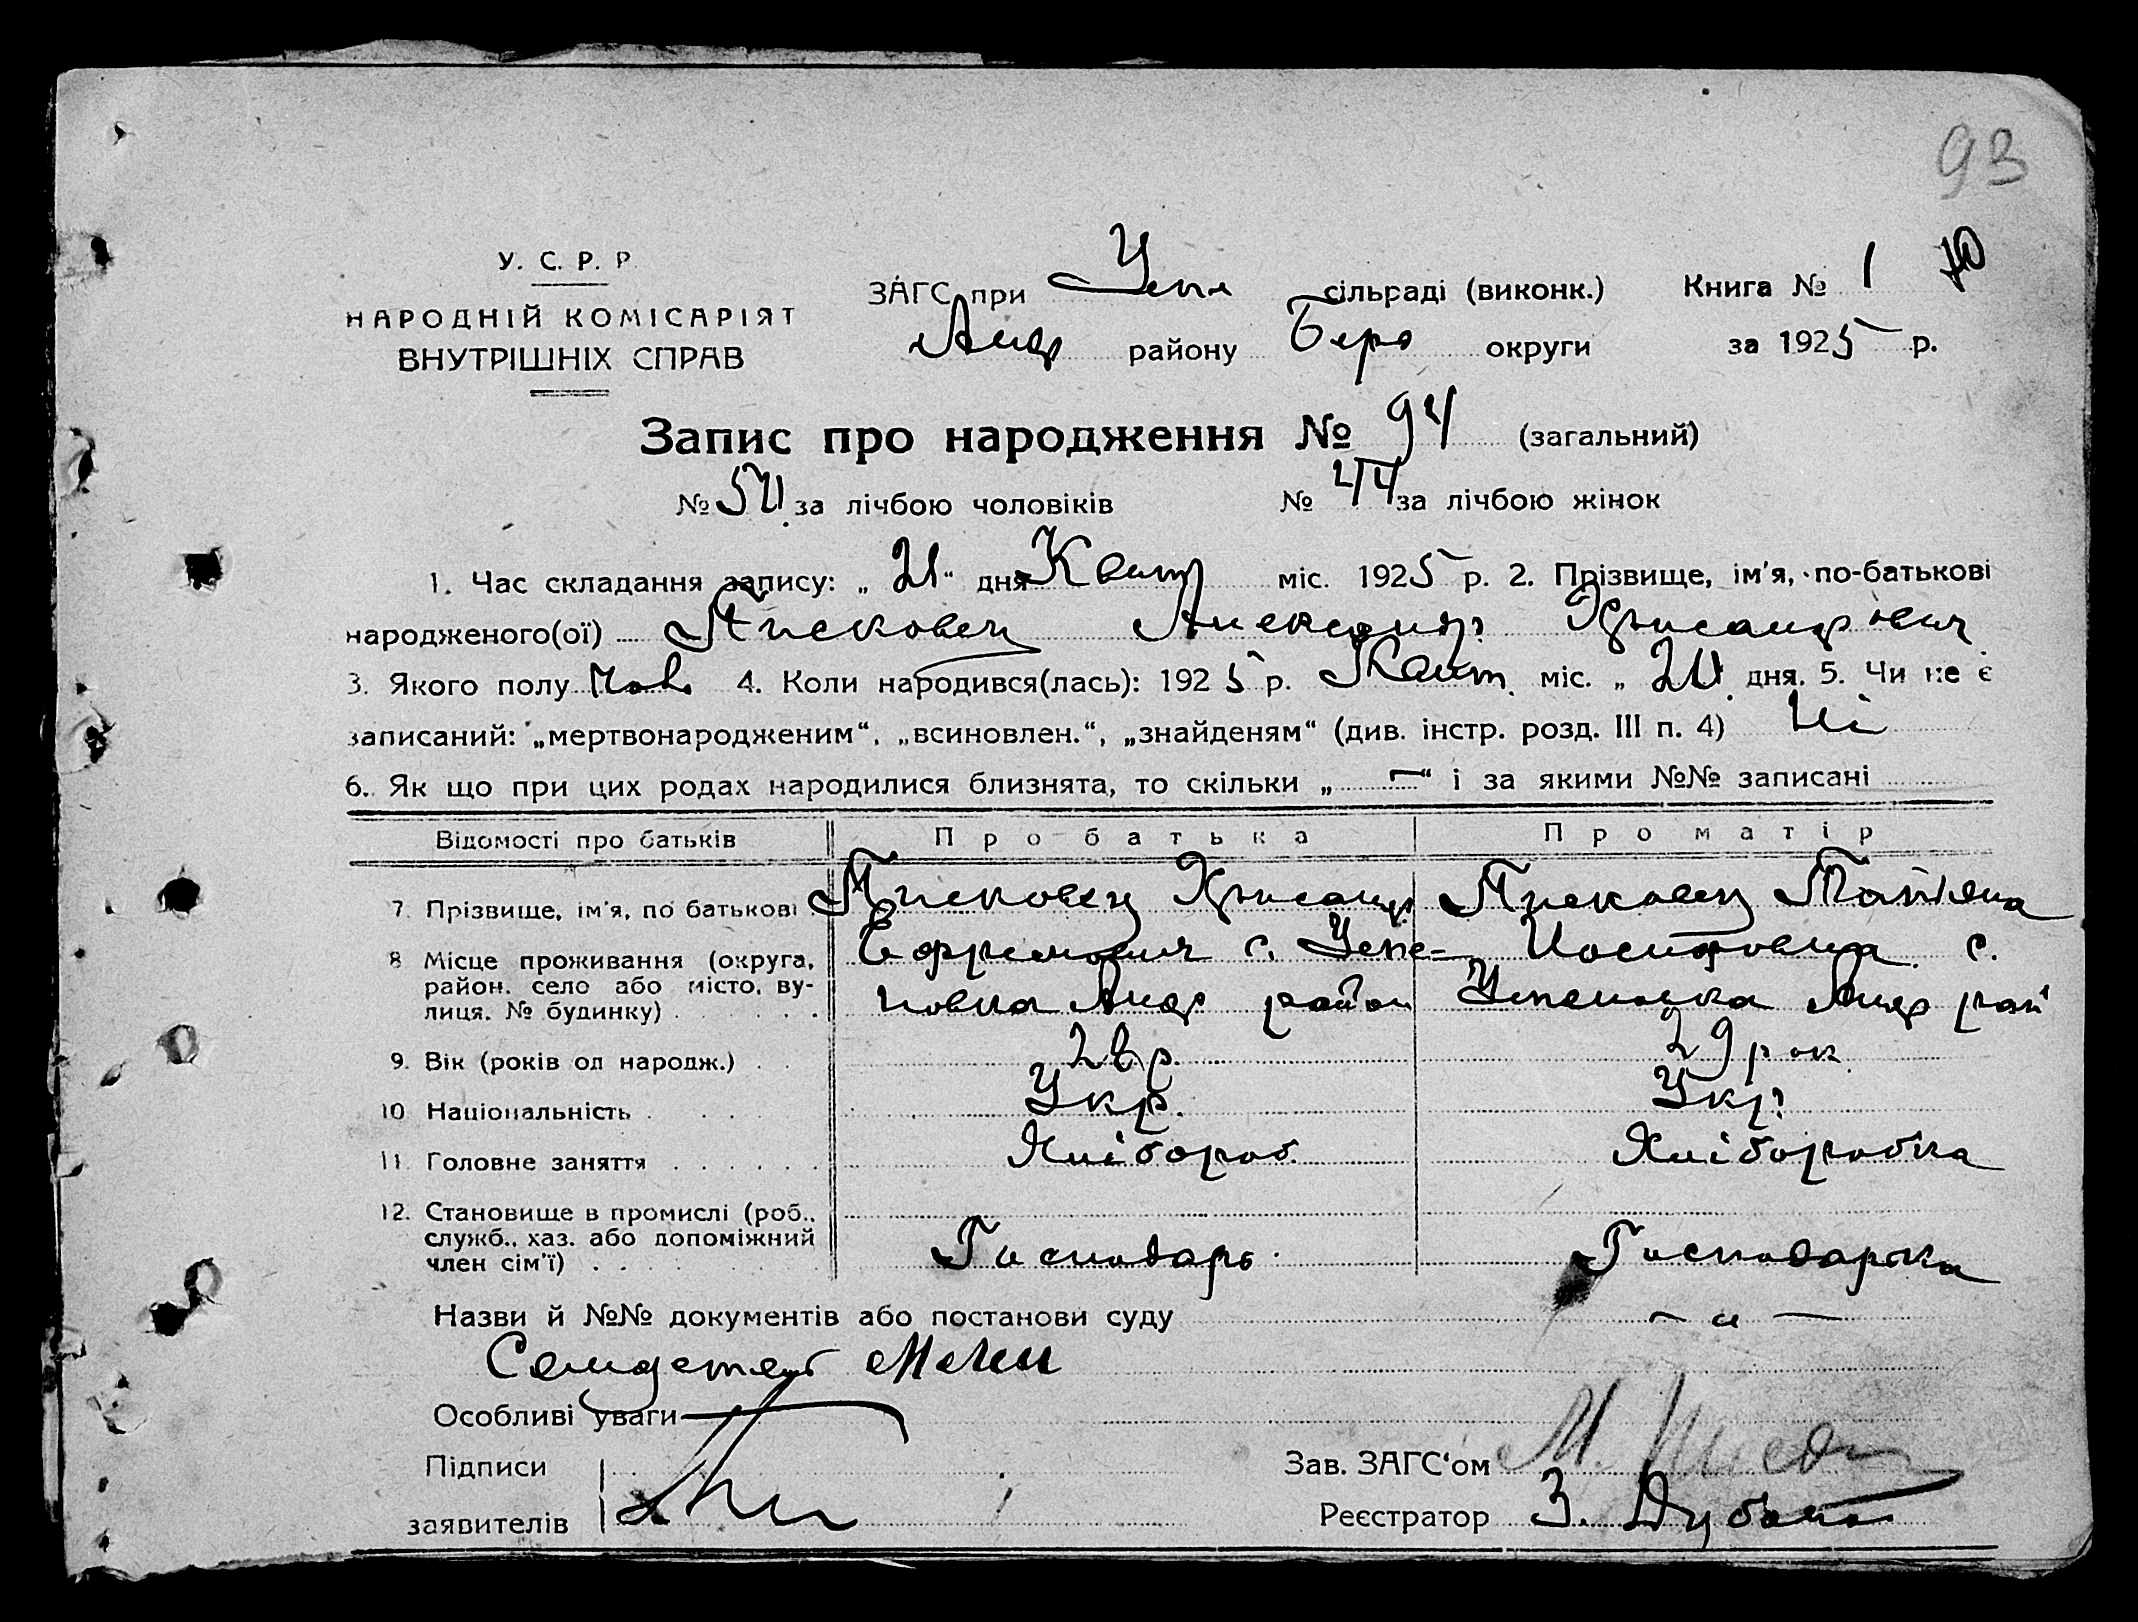 93
У. С. Р. Р.
НАРОДНІЙ КОМІСАРІЯТ
ВНУТРІШНІХ СПРАВ
ЗАГС при Успе сільраді (виконк.) Книга № 1
Анд району Берд округи за 1925 р.
Запис про народження № 94 (загальний)
№ 50 за лічбою чоловіків № 44 за лічбою жінок
1. Час складання запису: „21“ дня Квіт міс. 1925 р. 2. Прізвище, ім'я, по-батькові
народженого(ої) Писковец Александр Хрисанфович
3. Якого полу Чов. 4. Коли народився(лась): 1925 р. Квіт. міс. „20 дня. 5. Чи не є
записаний: „мертвонародженим“, „всиновлен.“, „знайденям“ (див. інстр. розд. III п. 4) Ні
6. Як що при цих родах народилися близнята, то скільки „ — “ і за якими №№ записані
Відомості про батьків Про батька Про матір
7. Прізвище, ім'я, по батькові Писковец Хрисанф Писковец Татіяна
8 Місце проживання (округа, Ефремович с. Успе- Иосифовна с.
район, село або місто, ву-
лиця, № будинку) новка Анд район Успеновка Анд рай
9. Вік (років од народж.) 28 р. 29 рок
10 Національність Укр. Укр.
11. Головне заняття Хлібороб Хлібородка
12. Становище в промислі (роб.,
служб., хаз. або допоміжний Господарь Господарька
член сім'ї)
Назви й №№ документів або постанови суду — „ —
Особливі уваги
Підписи Зав. ЗАГС'ом М.
заявителів Реєстратор З.